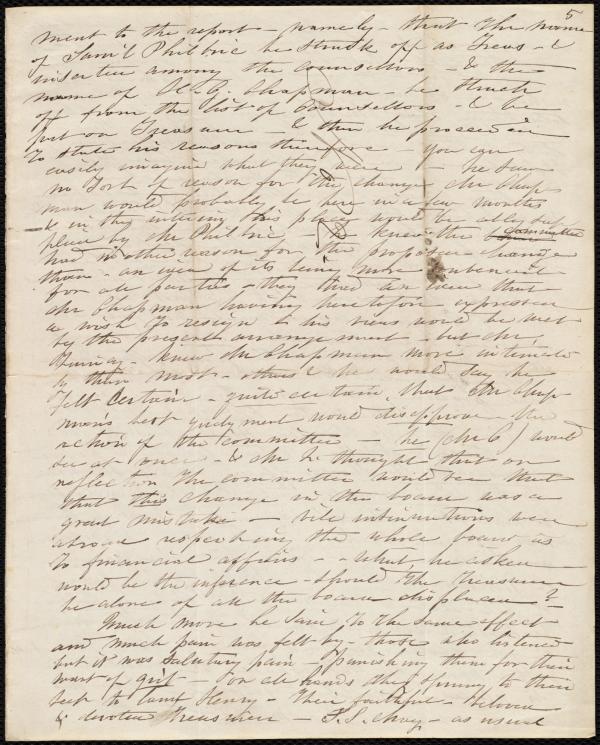 5
ment to the report - namely - that the name
of Saml Philbric be struck off as Treas - &
inserted among the counsellors - & the
name of H. G. Chapman - be struck
off from the list of Counsellors - & be
put on Treasurer - & then he proceeded
to state his reasons therefore You can
easily imagine what they were - he saw
no sort of reason for the change Mr Chap
man would probably be here in a few months
& in the interim his place would be ably sup
plied by Mr Philbric He knew the Committee
had no other reason for the proposed change
than - an idea of its being more convenient
for all parties - they had an idea that
Mr Chapman having heretofore expressed
a wish to resign & his views would be met
by the present arrangement but Mr
knew Mr Chapman more intimate
ly than most - others & he would say he
felt certain - quite certain, that Mr Chap
man's best judgment would disapprove the
action of the Committee - he (Mr C) would
see at once - & Mr thought that on
reflection the committee would see that
that this change in the board was a
great mistake - vile insinuations were
abroad respecting the whole board as
to financial affairs - - what, he asked
would be the inference - should the Treasurer
be alone of all the board displaced? -
Much more he said to the same effect
and much pain was felt by - those who listened
but it was salutary pain - punishing them for their
want of - For all hands they sprung to their
feet to Henry - Their faithful - beloved
& devoted Treasurer - S. S. May - as usual